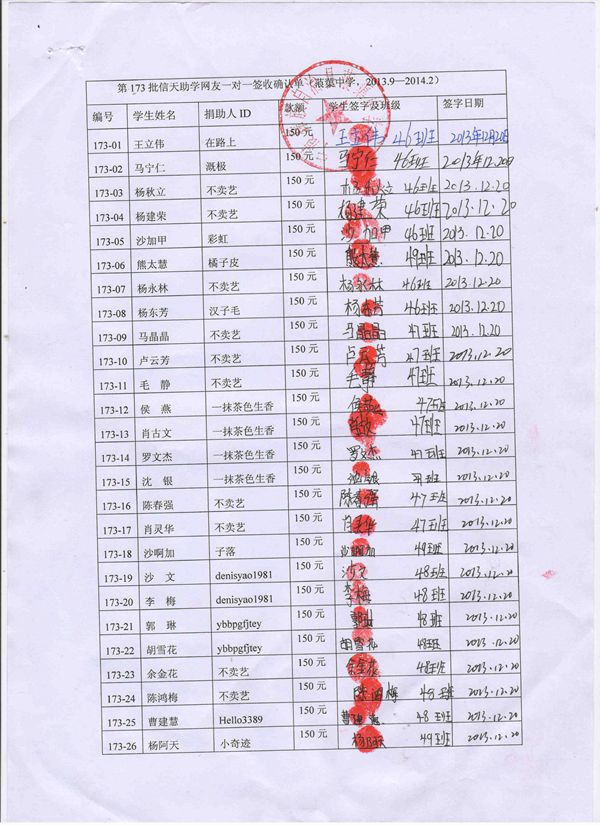 第 173 批信天助学网友一对一签收确认单（蒗蕖中学，2013.9—2014.2）
编号 学生姓名 捐助人 ID 款额 学生签字及班级 签字日期
173-01 王立伟 在路上 150 元 王立伟 46班 2013年12月20日
173-02 马宁仁 溉极 150 元 马宁仁 46班 2013年12.20日
173-03 杨秋立 不卖艺 150 元 杨秋立 46班 2013.12.20
173-04 杨建荣 不卖艺 150 元 杨建荣 46班 2013.12.20
173-05 沙加甲 彩虹 150 元 沙加甲 46班 2013.12.20
173-06 熊太慧 橘子皮 150 元 熊太慧 49班 2013.12.20
173-07 杨永林 不卖艺 150 元 杨永林 46班 2013.12.20
173-08 杨东芳 汉子毛 150 元 杨东芳 46班 2013.12.20
173-09 马晶晶 不卖艺 150 元 马晶晶 47班 2013.12.20
173-10 卢云芳 不卖艺 150 元 卢云芳 47班 2013.12.20
173-11 毛 静 不卖艺 150 元 毛静 47班 2013.12.20
173-12 侯 燕 一抹茶色生香 150 元 侯燕 47班 2013.12.20
173-13 肖古文 一抹茶色生香 150 元 47班 2013.12.20
173-14 罗文杰 一抹茶色生香 150 元 罗文杰 47班 2013.12.20
173-15 沈 银 一抹茶色生香 150 元 沈银 班 2013.12.20
173-16 陈春强 不卖艺 150 元 陈春强 47班 2013.12.20
173-17 肖灵华 不卖艺 150 元 肖灵华 47班 2013.12.20
173-18 沙啊加 子落 150 元 沙啊加 49班 2013.12.20
173-19 沙 文 denisyao1981 150 元 沙文 48班 2013.12.20
173-20 李 梅 denisyao1981 150 元 李梅 48班 2013.12.20
173-21 郭 琳 ybbpgfjtey 150 元 郭琳 48班 2013.12.20
173-22 胡雪花 ybbpgfjtey 150 元 胡雪花 48班 2013.12.20
173-23 余金花 不卖艺 150 元 余金花 48班 2013.12.20
173-24 陈鸿梅 不卖艺 150 元 陈鸿梅 48班 2013.12.20
173-25 曹建慧 Hello3389 150 元 曹建慧 48班 2013.12.20
173-26 杨阿天 小奇迹 150 元 杨阿天 49班 2013.12.20